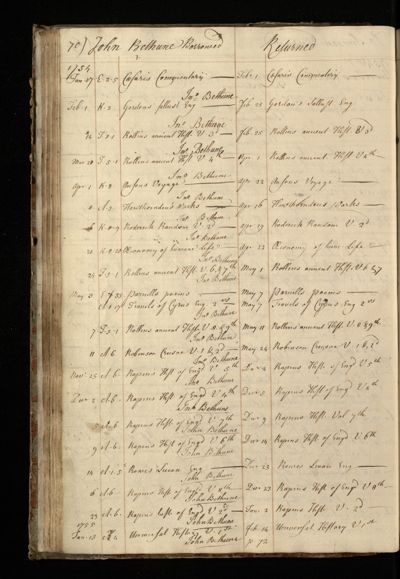 70) John Bethune Borrowed Returned
1754
Jan 17 E-2-5 Cæsaris Commentary — Feb: 1 Cæsaris Commentary
Jno Bethune
Feb: 1 K-2 Gordons Sallust Eng Feb 23 Gordon's Sallust Eng
Jno Bethune
F-5-1 Rollins ancient Hist. V 3d Feb 25 Rollins ancient Hist. V 3d
Jno Bethune
Mar 20 F-5-1 Rollins ancient Hist. V 4th Apr. 1 Rollins ancient Hist. V 4th
Jno Bethune
Apr. 1 K-2 Ansons Voyage Apr. 22 Ansons Voyage
Jno Bethune
A-3 Hawthornden's Works Apr 16 Hawthornden's Works
Jno Bethune
K-2-9 Roderick Random V 2d Apr 19 Roderick Random V 2d
Jno Bethune
Œconomy of human Life Apr 22 Œconomy of human Life
Jno Bethune
25 F-5-1 Rollins ancient Hist. V. 6, & 7th May 1 Rollins ancient Hist. V. 6 & 7
Jno Bethune
May 3 Parnells poems May 7 Parnells poems
Travels of Cyrus Eng. 2 vos May 7 Travels of Cyrus Eng 2 vos
Jno Bethune
7 F-5-1 Rollins ancient Hist. V. 8 & 9th May 11 Rollins ancient Hist. V. 8 & 9th
Jno Bethune
11 A-6 Robinson Crusoe V 1 & 2d May 24 Robinson Crusoe V. 1 & 2d
Jno Bethune
Nov 25 A-6 Rapins Hist of Engd V 5th Dec 2 Rapins Hist. of Engd V 5th
Jno Bethune
Dec 2 A-6- Rapins Hist of Engd V 4th Rapins Hist of Engd V 4th
Jno Bethune
A-6 Rapins Hist. of Engd V 7th Dec 9 Rapins Hist. Vol 7th
John Bethune
9 A-6- Rapins Hist of Engd V 6th Dec 14 Rapins Hist. of Engd V 6th
John Bethune
14 A-1-5 Rowes Lucan Eng Dec 23 Rowes Lucan Eng
John Bethune
A-6 Rapins Hist of Engd V Dec 23 Rapins Hist of Engd V
John Bethune
23 A-6- Rapins Hist of Engd V 2d Jan: 2 Rapins Hist V. 2d
1755 John Bethune
Jan: 13 Universal History V 1st Feb 14 Universal History V 1st
John Bethune p 72